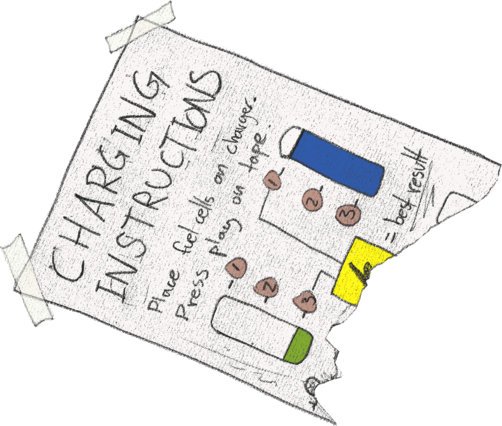 CHARGING
INSTRUCTIONS
Place fuel cells on charger.
Press play on tape.
1
2
3
= best result
1
2
3